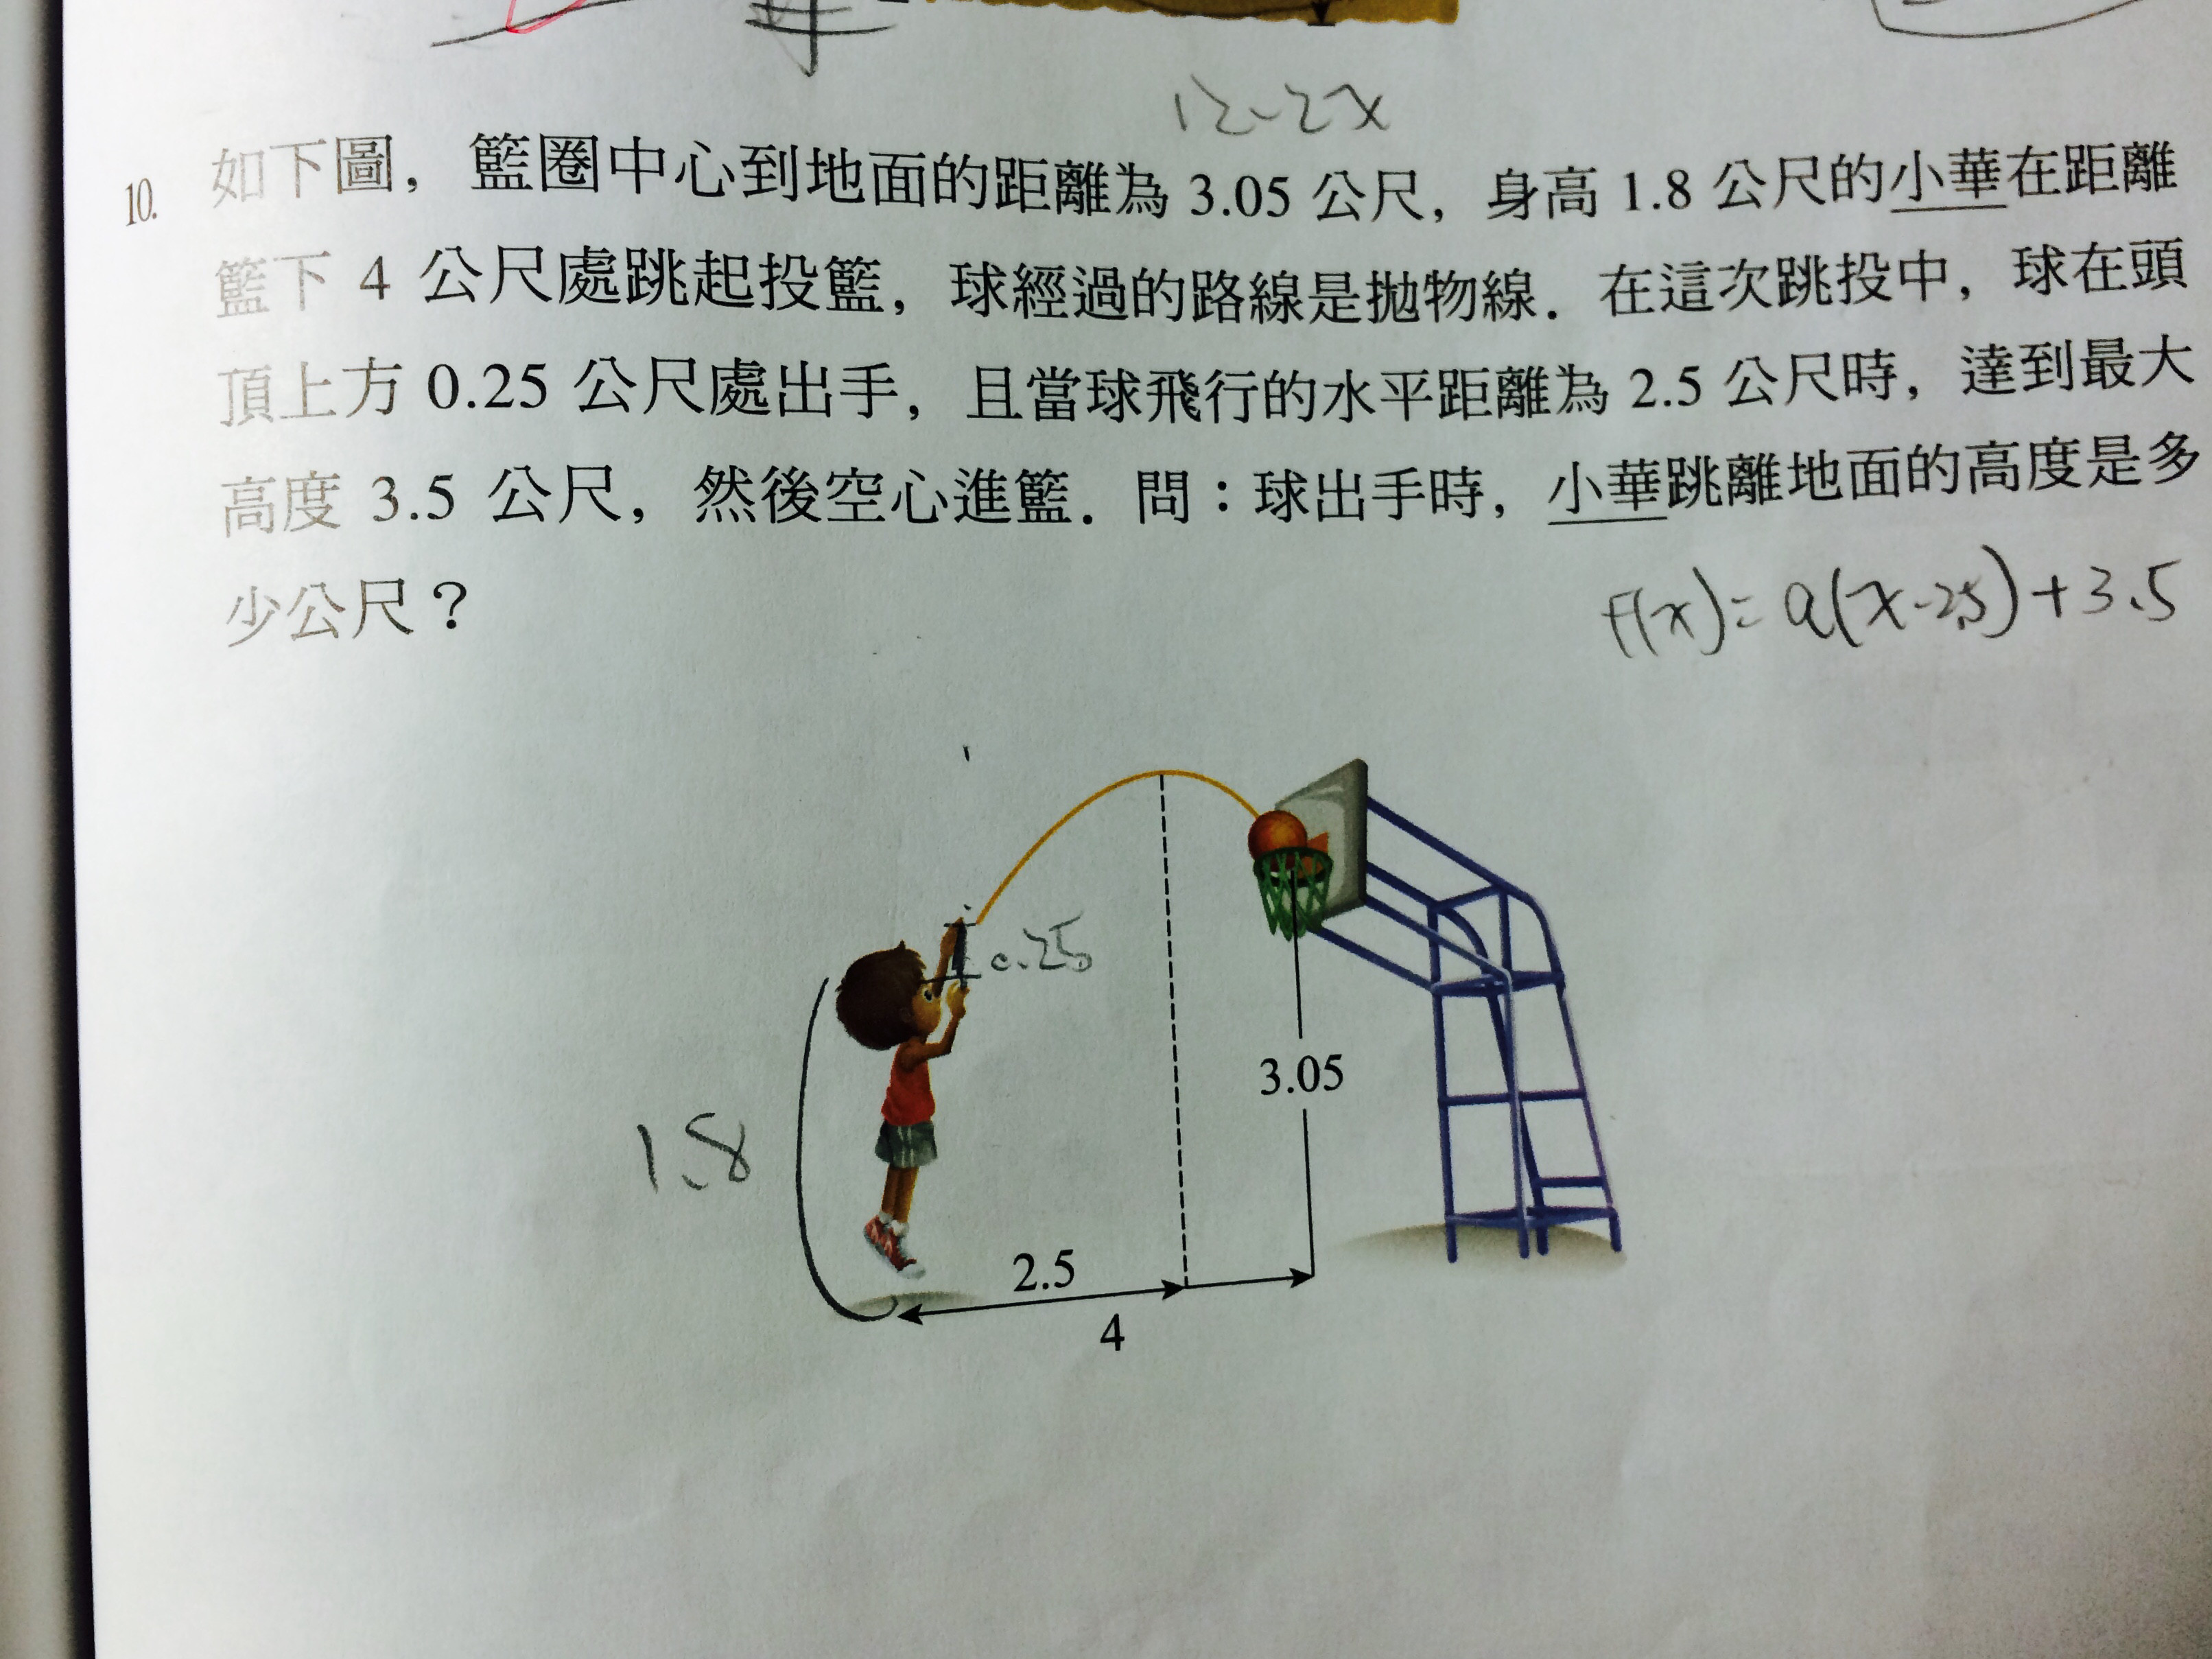 12-2x
10. 如下圖，籃圈中心到地面的距離為 3.05 公尺，身高 1.8 公尺的小華在距離
籃下 4 公尺處跳起投籃，球經過的路線是拋物線．在這次跳投中，球在頭
頂上方 0.25 公尺處出手，且當球飛行的水平距離為 2.5 公尺時，達到最大
高度 3.5 公尺，然後空心進籃．問：球出手時，小華跳離地面的高度是多
少公尺？
f(x)=a(x-2.5)+3.5
0.25
3.05
1.8
2.5
4